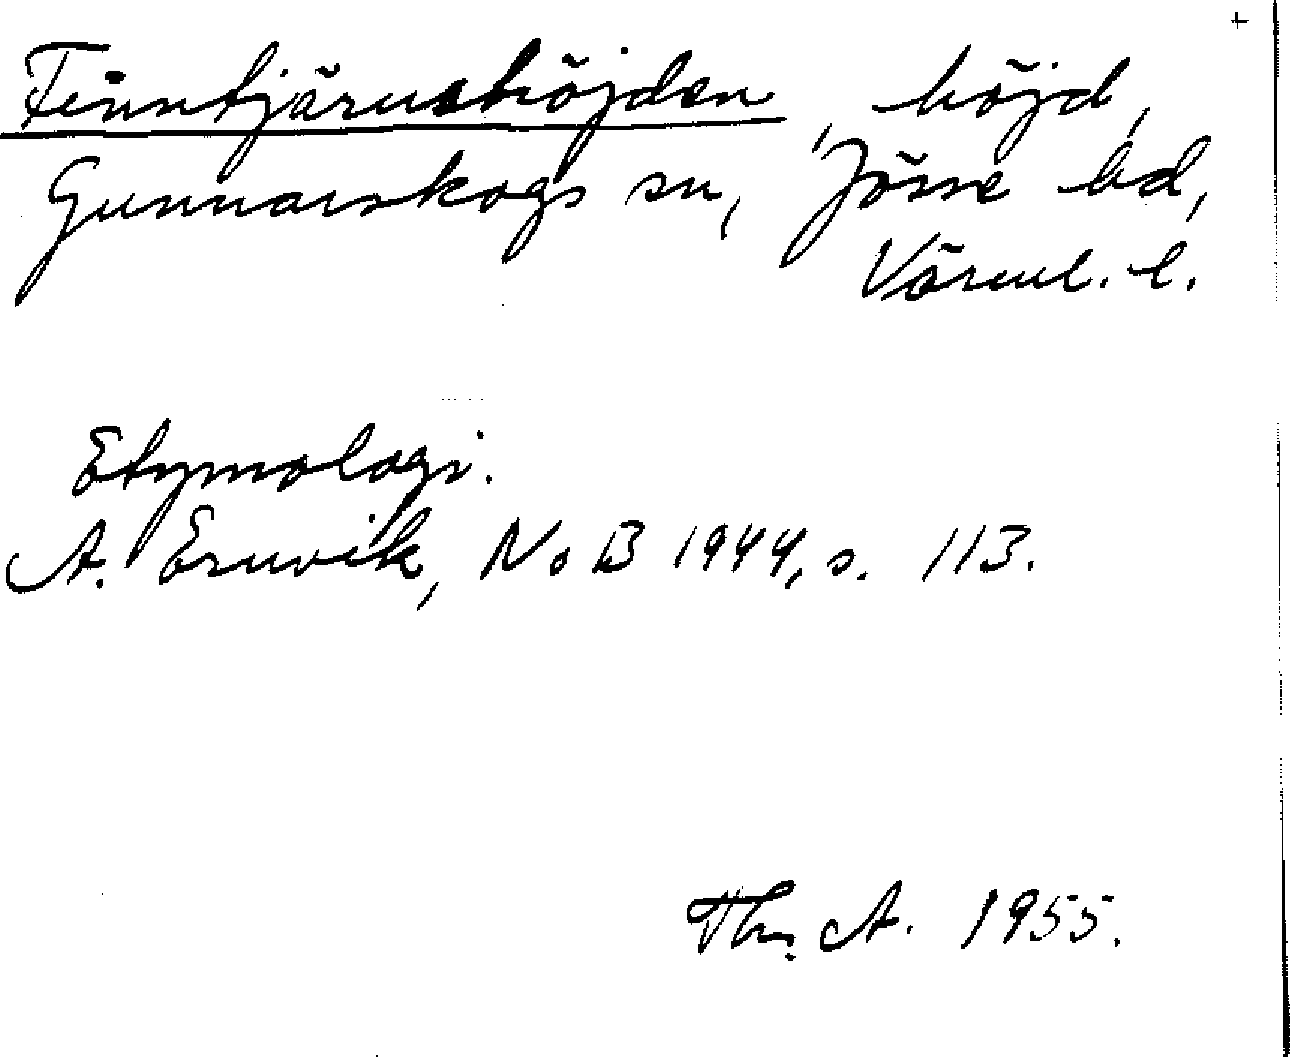 +
Finntjärnshöjden, höjd,
Gunnarskogs sn, Jösse hd,
Värml. l.
Etymologi.
A. Ernvik, NoB 1944, s. 113.
Th. A. 1955.